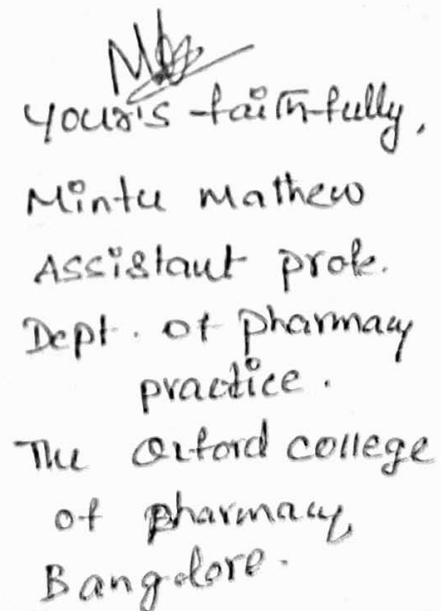 Your's faithfully,
Mintu Mathew
Assistant prof.
Dept. of pharmacy
practice.
The Oxford college
of pharmacy,
Bangalore.